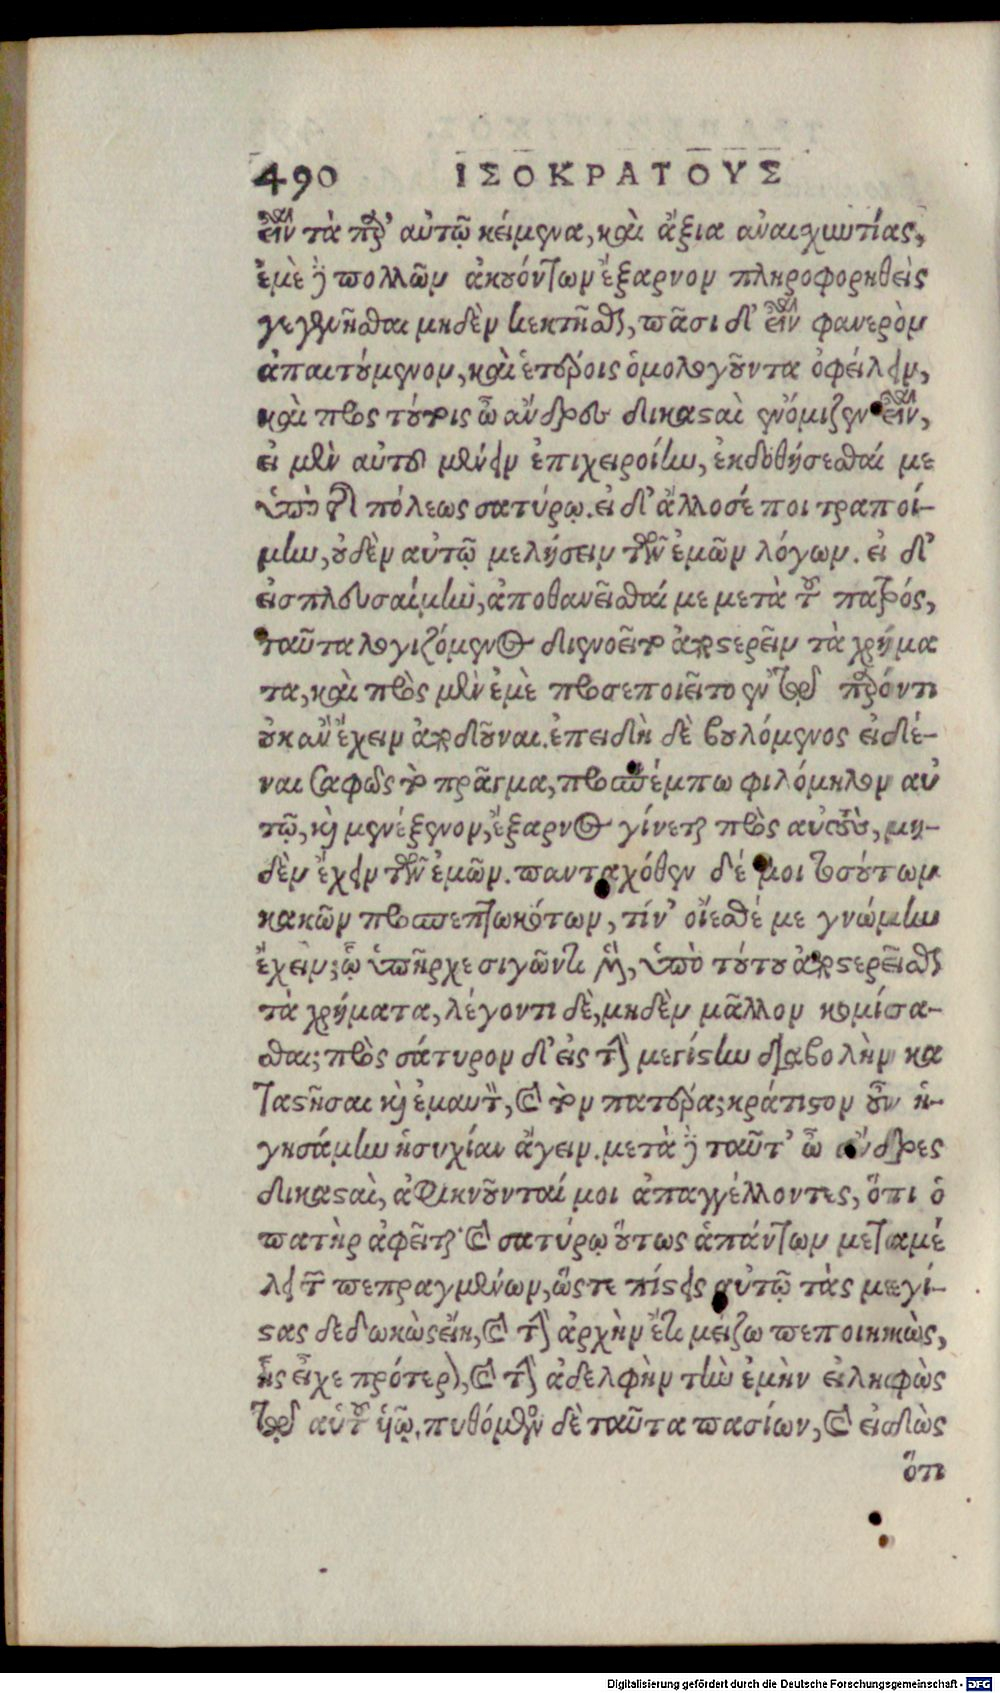 490 ΙΣΟΚΡΑΤΟΥΣ
εἶναι τὰ παρ' αὐτῷ κείμενα, καὶ ἄξια ἀναισχυντίας,
ἐμὲ δὲ πολλῶν ἀκουόντων ἔξαρνον πληροφορηθεὶς
γεγενῆσθαι μηδὲν κεκτῆσθαι, πᾶσι δ' εἶναι φανερὸν
ἀπαιτούμενον, καὶ ἑτέροις ὁμολογοῦντα ὀφείλειν,
καὶ πρὸς τούτοις ὦ ἄνδρες δικασταὶ ἐνόμιζεν εἶναι,
εἰ μὲν αὐτοῦ μένειν ἐπιχειροίην, ἐκδοθήσεσθαί με
ὑπὸ τῆς πόλεως σατύρῳ. εἰ δ' ἄλλοσέ ποι τραποί-
μην, οὐδὲν αὐτῷ μελήσειν τῶν ἐμῶν λόγων. εἰ δ'
εἰσπλευσαίμην, ἀποθανεῖσθαί με μετὰ τοῦ πατρός,
ταῦτα λογιζόμενος διενοεῖτο ἀποστερεῖν τὰ χρήμα
τα, καὶ πρὸς μὲν ἐμὲ προσεποιεῖτο ἐν τῷ παρόντι
οὐκ ἂν ἔχειν ἀποδοῦναι. ἐπειδὴ δὲ βουλόμενος εἰδέ-
ναι σαφῶς τὸ πρᾶγμα, προσπέμπω φιλόμηλον αὐ
τῷ, καὶ μενέξενον, ἔξαρνος γίνεται πρὸς αὐτοὺς, μη-
δὲν ἔχειν τῶν ἐμῶν. πανταχόθεν δέ μοι τοσούτων
κακῶν προσπεπτωκότων, τίν' οἴεσθέ με γνώμην
ἔχειν; ᾧ ὑπῆρχε σιγῶντι μὲν, ὑπὸ τούτου ἀποστερεῖσθαι
τὰ χρήματα, λέγοντι δὲ, μηδὲν μᾶλλον κομίσα-
σθαι; πρὸς σάτυρον δ' εἰς τὴν μεγίστην διαβολὴν κα
ταστῆσαι καὶ ἐμαυτὸν, καὶ τὸν πατέρα; κράτιστον οὖν ἡ-
γησάμην ἡσυχίαν ἄγειν. μετὰ δὲ ταῦτ' ὦ ἄνδρες
δικασταὶ, ἀφικνοῦνταί μοι ἀπαγγέλλοντες, ὅτι ὁ
πατὴρ ἀφεῖται· καὶ σατύρῳ οὕτως ἁπάντων μεταμέ
λει τῶν πεπραγμένων, ὥστε πίστεις αὐτῷ τὰς μεγί-
στας δεδωκὼς εἴη, καὶ τὴν ἀρχὴν ἔτι μείζω πεποιηκὼς,
ἧς εἶχε πρότερον, καὶ τὴν ἀδελφὴν τὴν ἐμὴν εἰληφὼς
τῷ αὑτοῦ υἱῷ. πυθόμενος δὲ ταῦτα πασίων, καὶ εἰδὼς
ὅτι
Digitalisierung gefördert durch die Deutsche Forschungsgemeinschaft - DFG